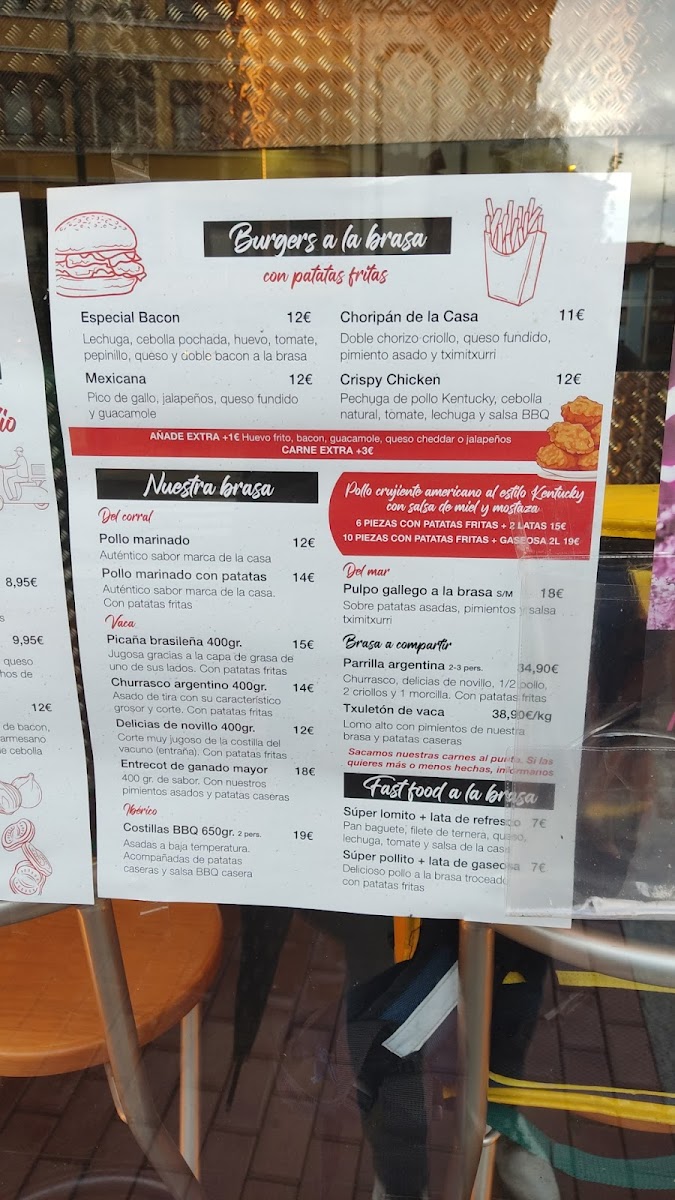 io
8,95€
s
9,95€
queso
hos de
12€
de bacon,
armesano
e cebolla
Burgers a la brasa
con patatas fritas
Especial Bacon 12€
Lechuga, cebolla pochada, huevo, tomate,
pepinillo, queso y doble bacon a la brasa
Mexicana 12€
Pico de gallo, jalapeños, queso fundido
y guacamole
Choripán de la Casa 11€
Doble chorizo criollo, queso fundido,
pimiento asado y tximitxurri
Crispy Chicken 12€
Pechuga de pollo Kentucky, cebolla
natural, tomate, lechuga y salsa BBQ
AÑADE EXTRA +1€ Huevo frito, bacon, guacamole, queso cheddar o jalapeños
CARNE EXTRA +3€
Nuestra brasa
Del corral
Pollo marinado 12€
Auténtico sabor marca de la casa
Pollo marinado con patatas 14€
Auténtico sabor marca de la casa.
Con patatas fritas
Vaca
Picaña brasileña 400gr. 15€
Jugosa gracias a la capa de grasa de
uno de sus lados. Con patatas fritas
Churrasco argentino 400gr. 14€
Asado de tira con su característico
grosor y corte. Con patatas fritas
Delicias de novillo 400gr. 12€
Corte muy jugoso de la costilla del
vacuno (entraña). Con patatas fritas
Entrecot de ganado mayor 18€
400 gr. de sabor. Con nuestros
pimientos asados y patatas caseras
Ibérico
Costillas BBQ 650gr. 2 pers. 19€
Asadas a baja temperatura.
Acompañadas de patatas
caseras y salsa BBQ casera
Pollo crujiente americano al estilo Kentucky
con salsa de miel y mostaza
6 PIEZAS CON PATATAS FRITAS + 2 LATAS 15€
10 PIEZAS CON PATATAS FRITAS + GASEOSA 2L 19€
Del mar
Pulpo gallego a la brasa S/M 18€
Sobre patatas asadas, pimientos y salsa
tximitxurri
Brasa a compartir
Parrilla argentina 2-3 pers. 34,90€
Churrasco, delicias de novillo, 1/2 pollo,
2 criollos y 1 morcilla. Con patatas fritas
Txuletón de vaca 38,90€/kg
Lomo alto con pimientos de nuestra
brasa y patatas caseras
Sacamos nuestras carnes al punto. Si las
quieres más o menos hechas, infórmanos
Fast food a la brasa
Súper lomito + lata de refresco 7€
Pan baguete, filete de ternera, queso,
lechuga, tomate y salsa de la casa
Súper pollito + lata de gaseosa 7€
Delicioso pollo a la brasa troceado
con patatas fritas